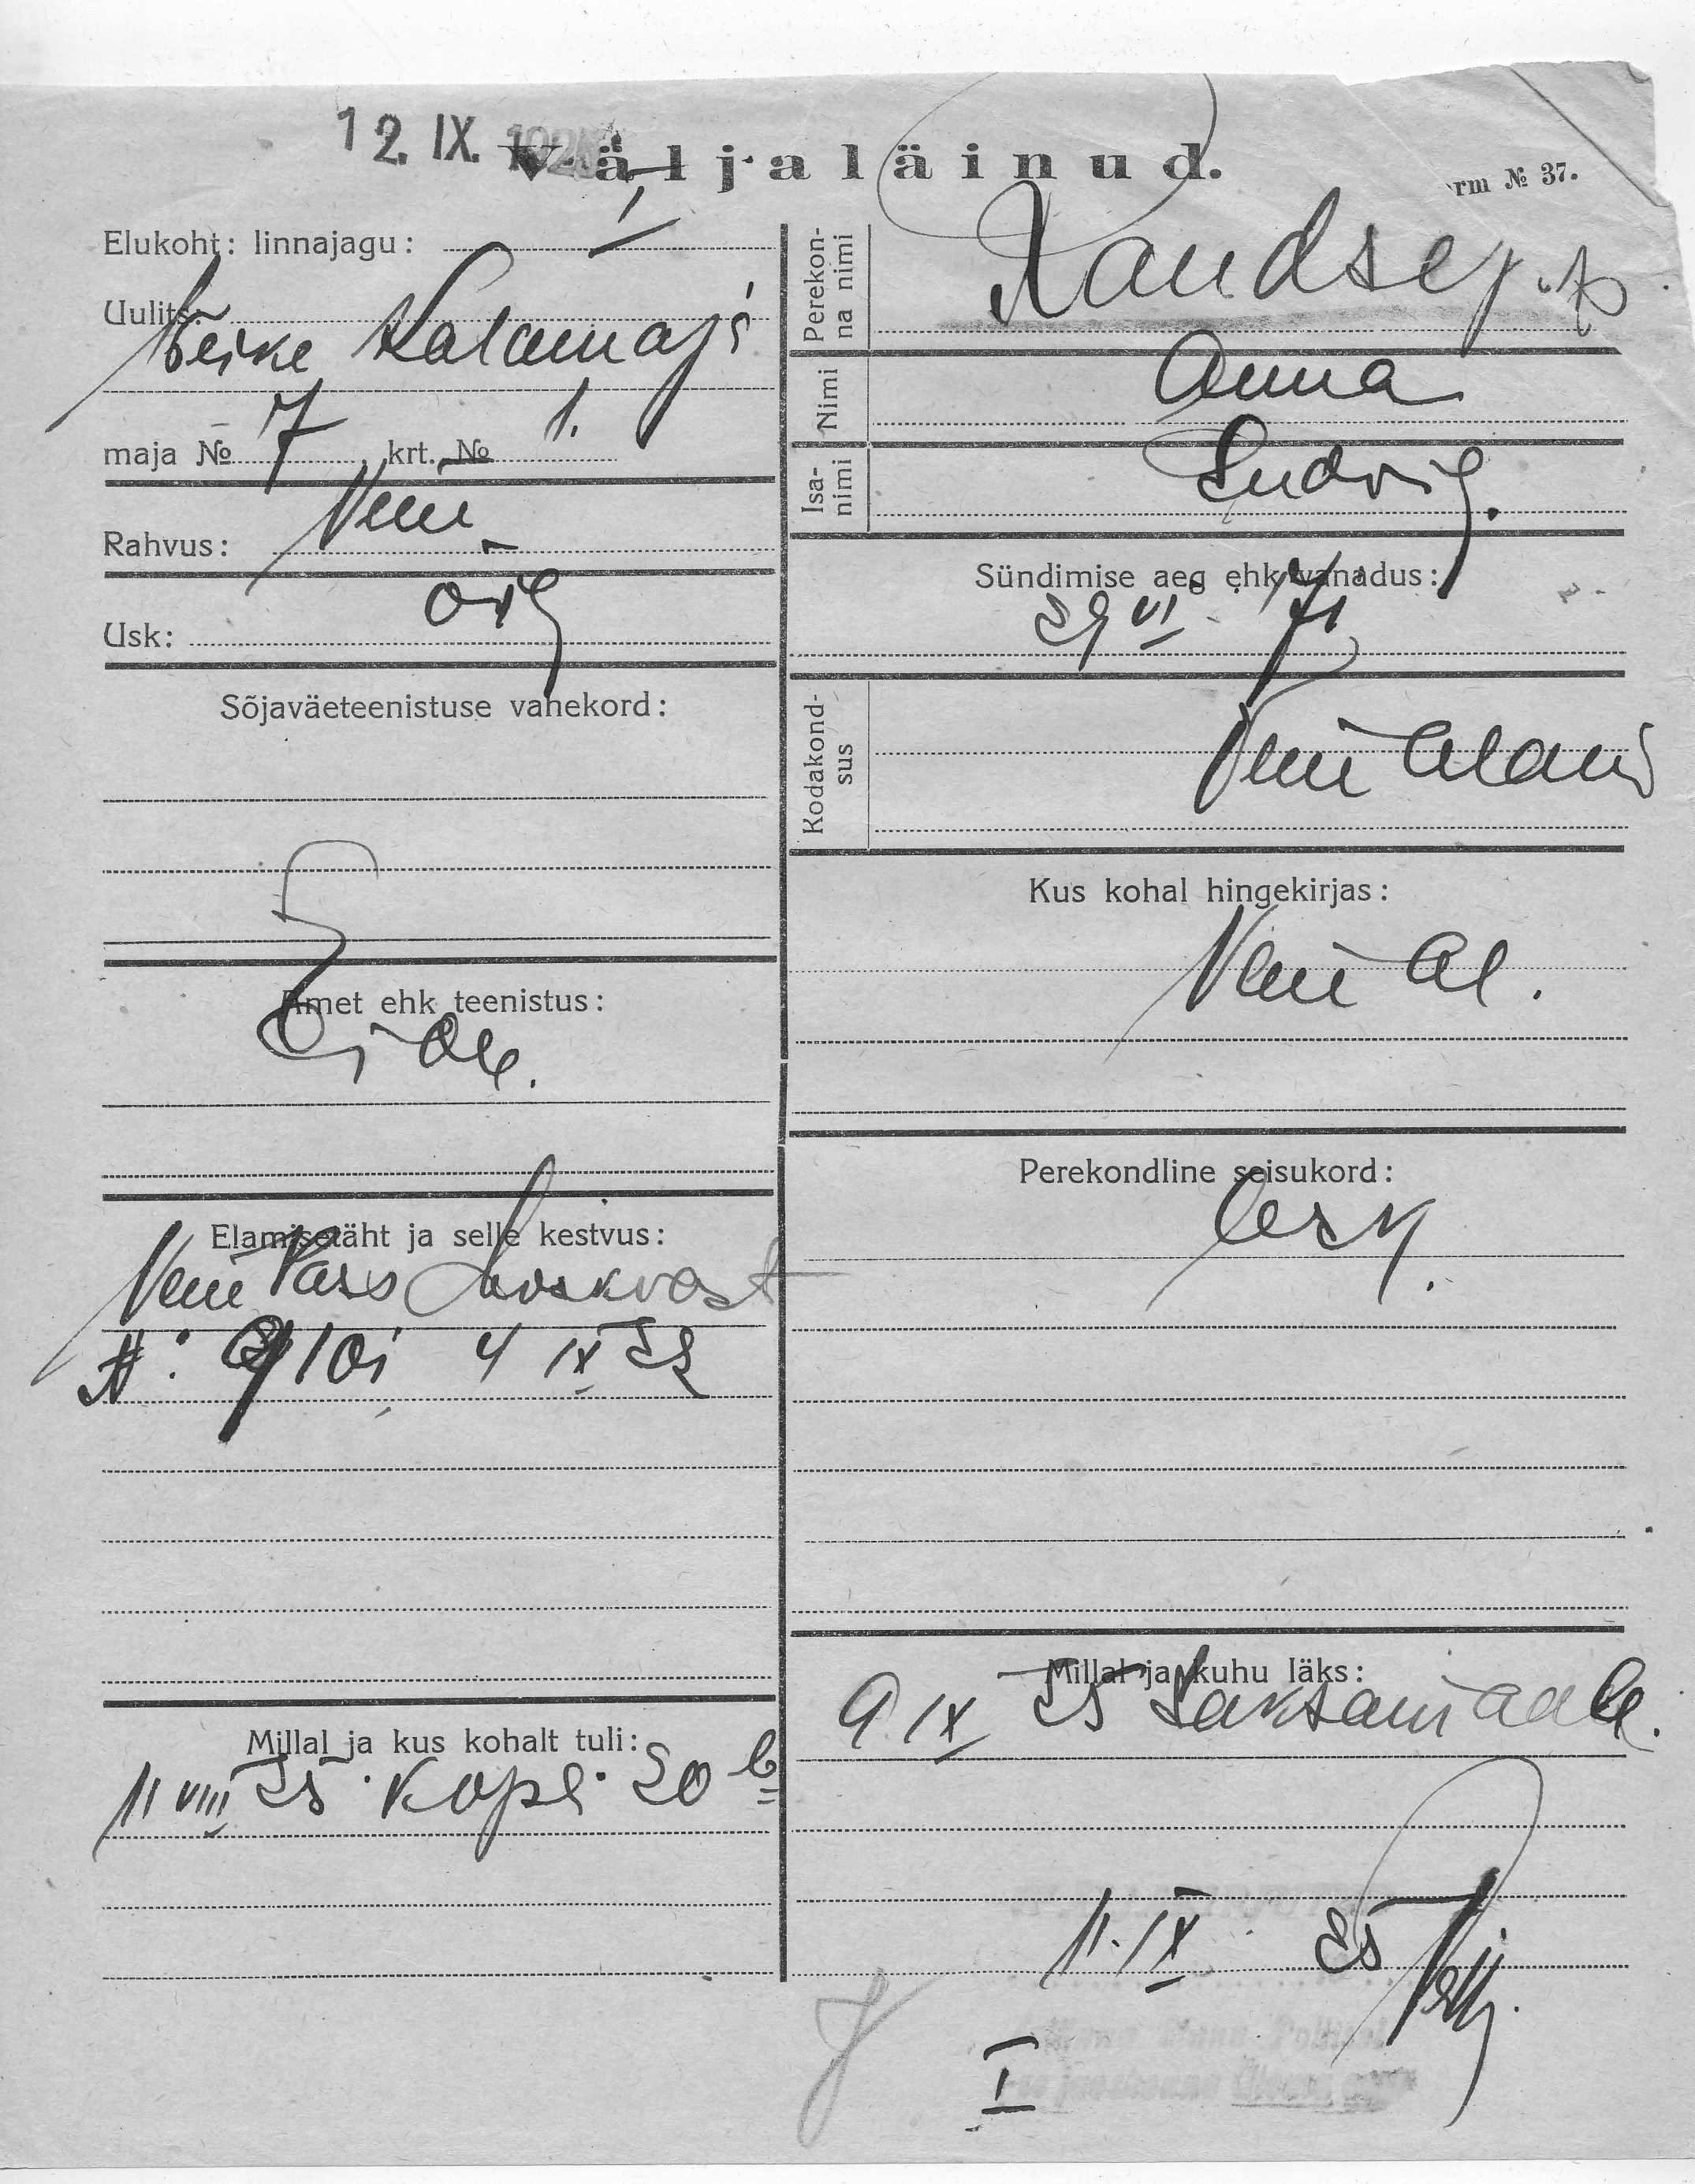 12. IX. 1925
Väljaläinud.
rm № 37.
Elukoht: linnajagu: I
Uulits:
Väike Kalamaja
maja № 7 krt. № 1.
Rahvus: Vene
Usk: õig
Sõjaväeteenistuse vahekord:
Amet ehk teenistus:
Ei ole.
Elamisetäht ja selle kestvus:
Vene Pass Moskvast
№: 4 IX
Millal ja kus kohalt tuli:
11 VIII 25 Kopli 20
Perekonna nimi
Randsepp
Nimi
Anna
Isanimi
Ludvig.
Sündimise aeg ehk vanadus:
29 VI 71
Kodakondsus
Vene alam
Kus kohal hingekirjas:
Vene al.
Perekondline seisukord:
lesk.
Millal ja kuhu läks:
9 IX 25 Saksamaale.
11. IX 25
I